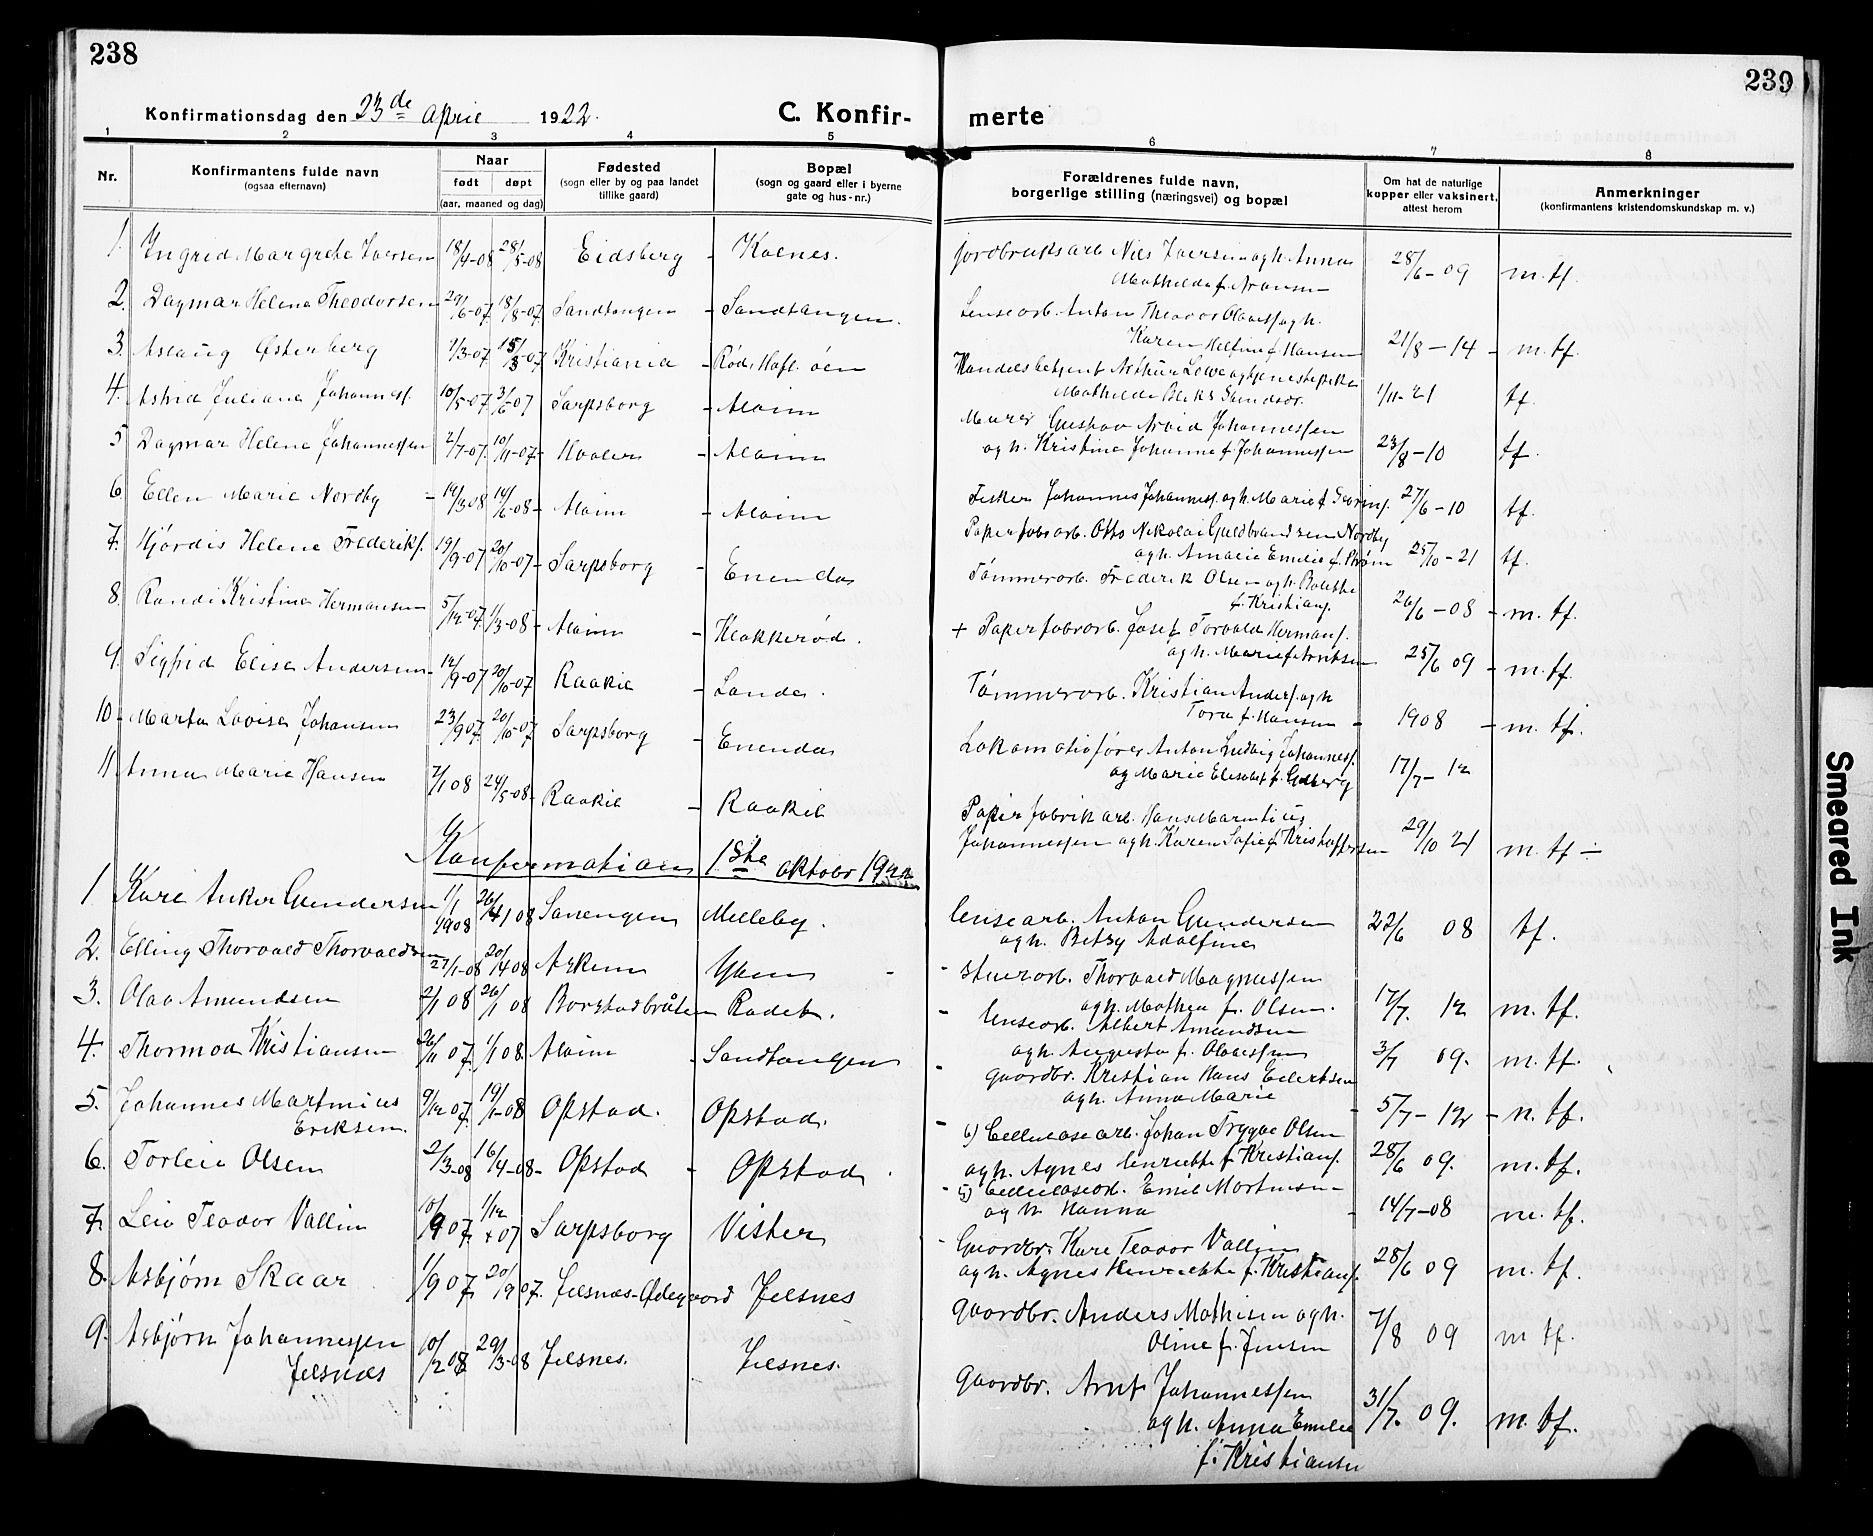 238
239
Konfirmationsdag den 23de April 1922.
C. Konfir-
merte
1 2 3 4 5 6 7 8
Nr.
Konfirmantens fulde navn
(ogsaa efternavn)
Naar
født døpt
(aar, maaned og dag)
Fødested
(sogn eller by og paa landet
tillike gaard)
Bopæl
(sogn og gaard eller i byerne
gate og hus-nr.)
Forældrenes fulde navn,
borgerlige stilling (næringsvei) og bopæl
Om hat de naturlige
kopper eller vaksinert,
attest herom
Anmerkninger
(konfirmantens kristendomskundskap m. v.)
1. Ingrid Margrete Iversen 18/4-08 28/5-08 Eidsberg - Kolnes.
jordbruksarb. Nils Iversen og h. Anna
Mathilde f. 28/6-09 m. tf.
2. Dagmar Helene Theodorsen 29/6-07. 18/8-07. Sandtangen - Sandtangen.
Lensearb. Anton Theodor Olavss. og h.
Karen f. Hansen 21/8-14 - m. tf.
3. Aslaug Østerberg 7/3-07 Kristiania
Handelsbetjent Arthur
Mathilde 1/11-21 tf.
4. Astrid Juliane Johanness. 10/5-07 3/6-07 Sarpsborg - Alvim
Murer Gustav Arvid Johannessen
og h. Kristine Johanne f. Johannessen 23/8-10 tf.
5 Dagmar Helene Johannessen 2/7-07. 10/11-07- Hvaler - Alvim
Fisker Johannes Johanness. og h. Marie f. 27/6-10 tf.
6 Ellen Marie Nordby - 14/3-08 14/6-08 - Alvim - Alvim
Papirfabr.arb. Otto Nikolai Guldbrandsen Nordby
og h. Amalie Emilie f. Strøm 25/10-21 tf.
7. Hjørdis Helene Frederiks. 19/9-07 20/10-07 - Sarpsborg - Enenda
Tømmerarb. Frederik Olsen og h. Bolette
f. Kristians. 26/6-08 - m. tf.
8. Randi Kristine Hermansen 5/12-07. 1/3-08 - Alvim - Klokkerød.
+ Papirfabrarb. Josef Torvald Hermans.
og h. Marie f. 25/6 09 - m. tf.
9. Sigfrid Elise Andersen 12/9-07 20/10-07 Raakil - Lande.
Tømmerarb. Kristian Anders. og h
Tora f. Hansen - 1908 - m. tf.
10. Marta Lovise Johansen 23/9 07. 20/10-07 Sarpsborg - Enenda
Lokomotivfører Anton Ludvig Johanness.
og Marie Elisabet f. 17/7-12
11 Anna Marie Hansen 7/1 08 24/5-08- Raakil - Raakil
Papirfabrikarb. Hans Marentius
Johannessen og h. Karen Sofie f. Kristoffersen 29/10 21 m. tf ÷
Konfirmation 1ste oktobr 1922
1 Kåre Anker Gundersen 1/1 1908 26/4 08 Sanengen Melleby.
lensearb. Anton Gundersen
og h. Betzy Adolfine 22/6 08 tf.
2. Elling Thorvald Thorvaldsen 27/1-08 20/4 08 Askim Yven -
- stuerarb. Thorvald Magnussen
og h. Mathea f. Olsen. 17/7. 12 m. tf.
3. Olav Amundsen 2/1 08 26/1 08 Borstadbråten Rødet.
- lensearb. Albert Amundsen
og h. Augusta f. Olavessen 3/7 09. m. tf.
4. Thormod Kristiansen 26/11 07. 1/1 08 Alvim - Sandtangen
- gaardbr. Kristian Hans Eilertsen
og h. Anna Marie - 5/7-12 - m. tf.
5. Johannes Martinius
Eriksen. 9/12 07. 19/1-08 Opstad. Opstad.
- 6) Cellulosearb. Johan Trygve Olsen
og h. Agnes Henriette f. Kristians. 28/6 09. m. tf.
6. Torleiv Olsen 2/3-08 16/4-08- Opstad - Opstad.
- 5) Cellulosearb. Emil Martinsen -
og h Hanna - 14/7-08 m. tf.
7. Leiv Teodor Vallin 10/9 07. 1/12 + 07 Sarpsborg Vister
- Gaardbr. Kåre Teodor Vallin
og h. Agnes Henriette f. Kristians. 28/6 09 m. tf.
8. Asbjørn Skaar 1/9 07. 20/9 07. Jelsnes-Ødegaard Jelsnes
gaardbr. Anders Mathisen og h.
Oline f. Jensen 7/8 09 m tf.
9. Asbjørn Johannessen
Jelsnes 10/2 08 29/3-08 Jelsnes. Jelsnes.
gaardbr. Arnt Johannessen
og h. Anna Emilie
f. Kristiansen 31/7. 09. m. tf.
Smeared Ink